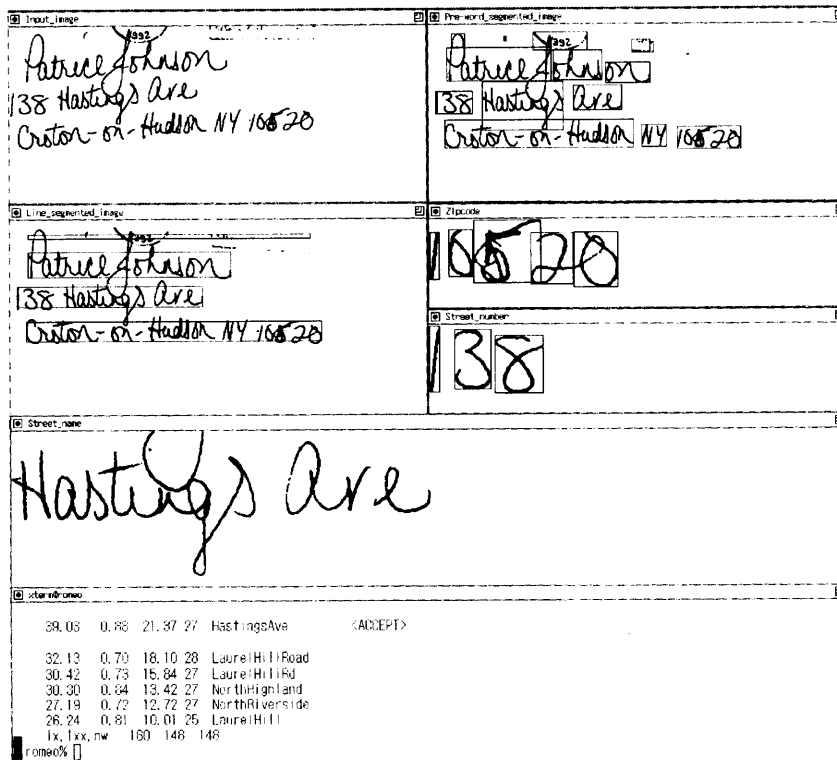 Input_image
1992
Patrice Johnson
138 Hastings Ave
Croton-on-Hudson NY 10520
Pre-word_segmented_image
1992
Patrice Johnson
138 Hastings Ave
Croton-on-Hudson NY 10520
Line_segmented_image
1992
Patrice Johnson
138 Hastings Ave
Croton-on-Hudson NY 10520
Zipcode
10520
Street_number
138
Street_name
Hastings Ave
xterm@romeo
39.03 0.88 21.37 27 HastingsAve <ACCEPT>
32.13 0.70 18.10 28 LaurelHillRoad
30.42 0.73 15.84 27 LaurelHillRd
30.30 0.84 13.42 27 NorthHighland
27.19 0.72 12.72 27 NorthRiverside
26.24 0.81 10.01 25 LaurelHill
lx,lxx,nw 160 148 148
romeo%